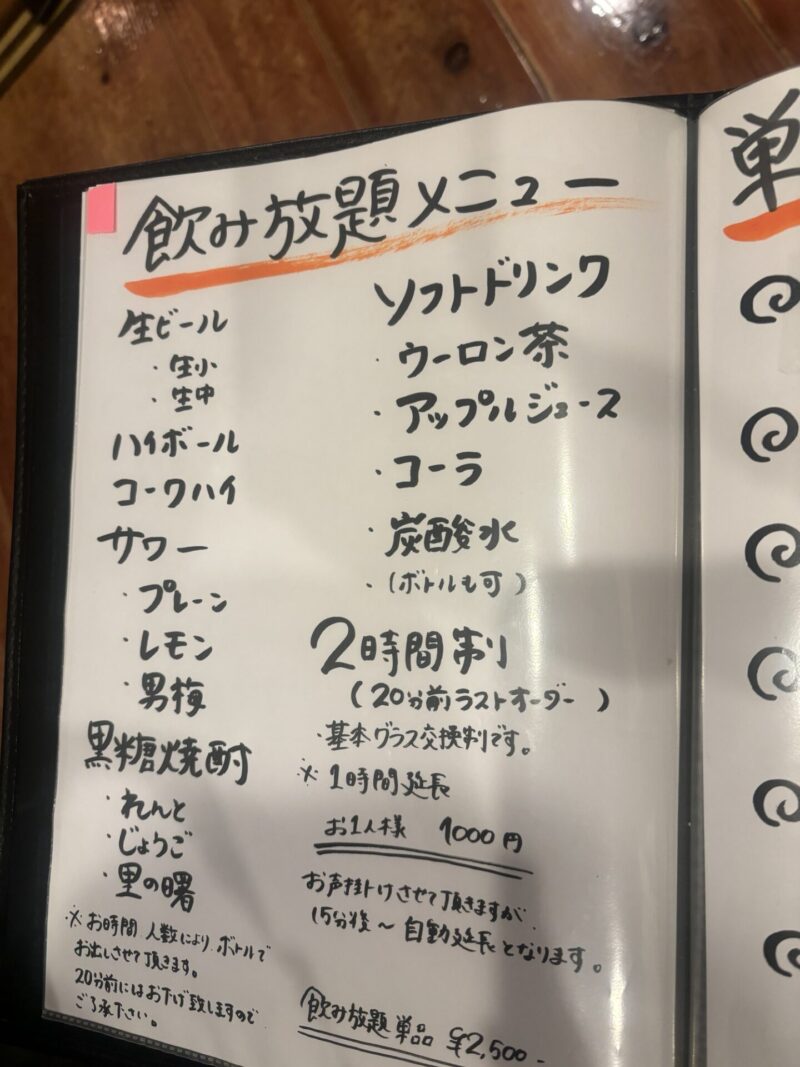 飲み放題メニュー
生ビール
・生小
・生中
ハイボール
コークハイ
サワー
・プレーン
・レモン
・男梅
黒糖焼酎
・れんと
・じょうご
・里の曙
※お時間 人数により、ボトルで
お出しさせて頂きます。
20分前にはお下げ致しますので
ご了承下さい。
ソフトドリンク
・ウーロン茶
・アップルジュース
・コーラ
・炭酸水
・(ボトルも可)
2時間制
(20分前ラストオーダー)
・基本グラス交換制です。
※1時間延長
お1人様 1000円
お声掛けさせて頂きますが、
15分後〜自動延長となります。
飲み放題単品 ¥2,500-
単